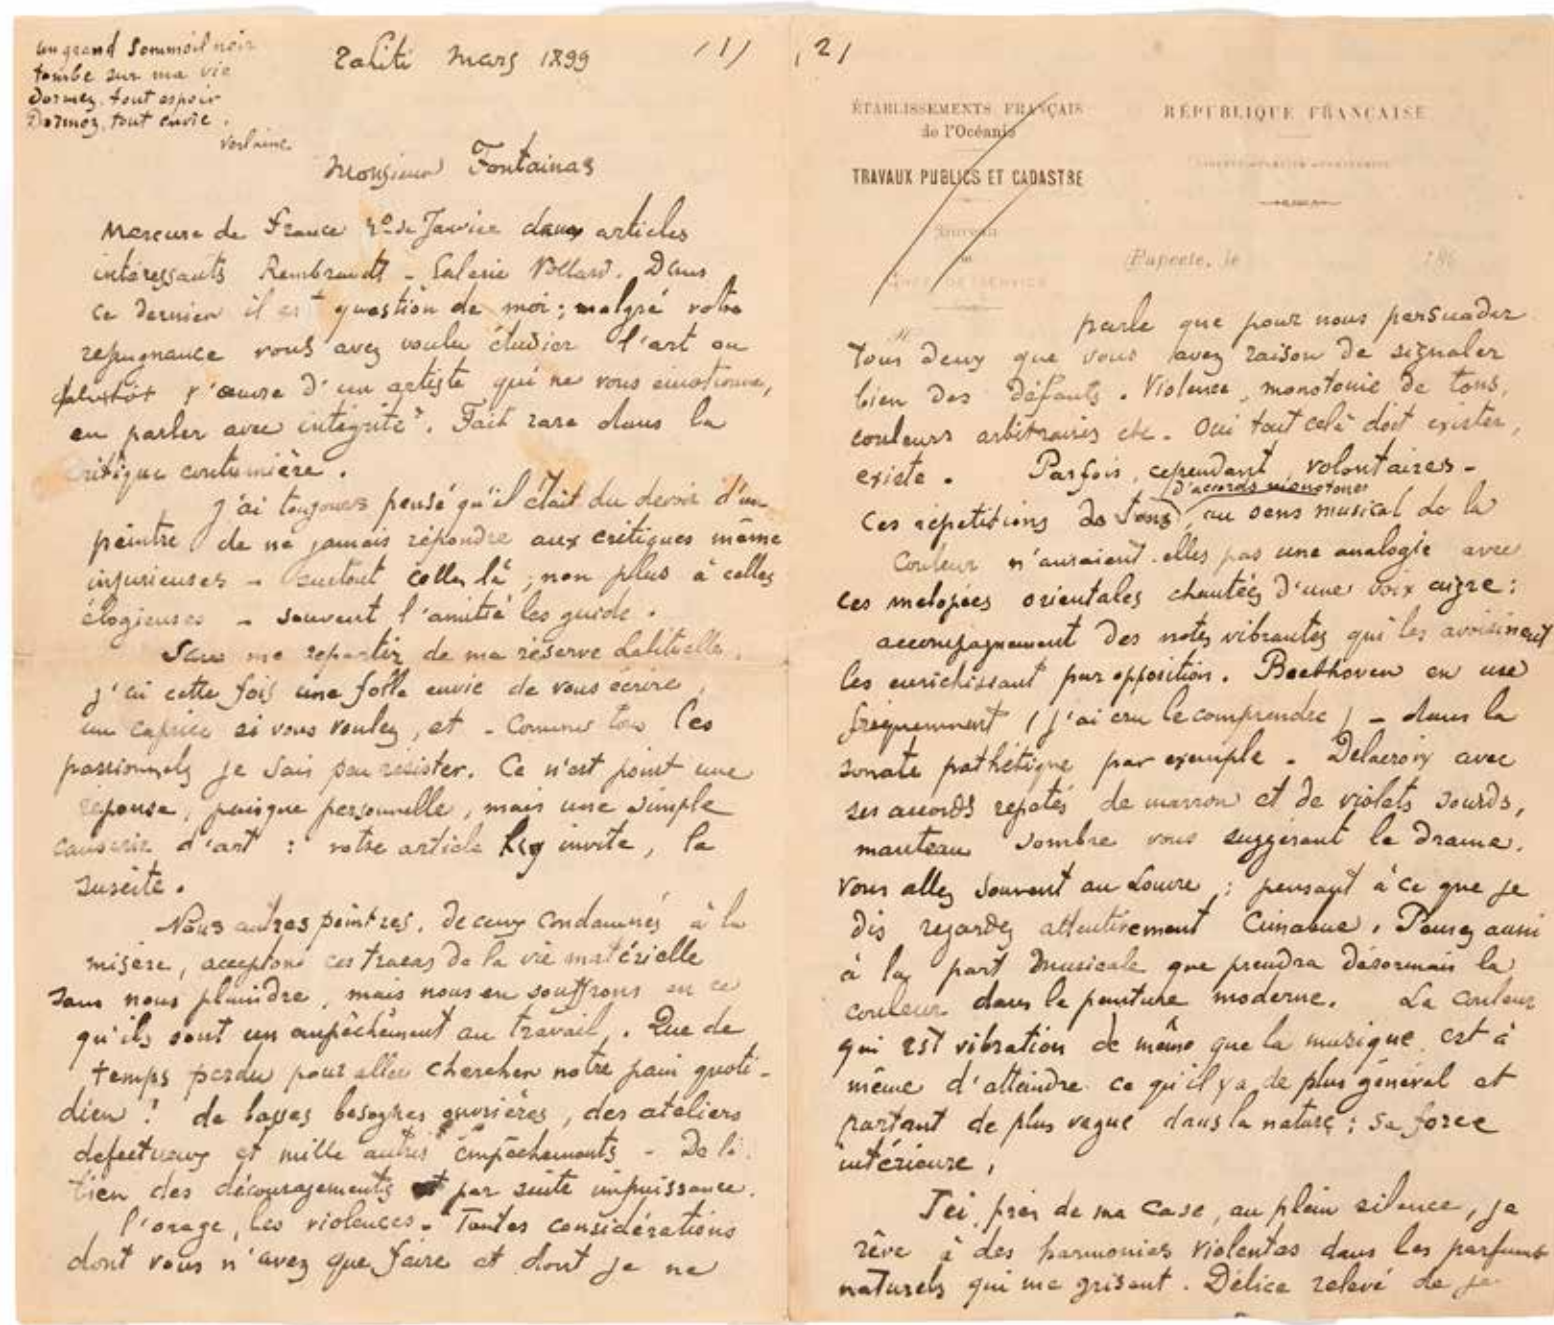 un grand sommeil noir
tombe sur ma vie
Dormez, tout espoir
Dormez, tout envie.
Verlaine.
Tahiti Mars 1899
/1/
Monsieur Fontainas
Mercure de France de Janvier deux articles
intéressants Rembrandt - Galerie Vollard. Dans
ce dernier il est question de moi; malgré votre
repugnance vous avez voulu étudier l'art ou
plutôt l'œuvre d'un artiste qui ne vous émotionne,
en parler avec intégrité. Fait rare dans la
critique coutumière.
J'ai toujours pensé qu'il était du devoir d'un
peintre de ne jamais répondre aux critiques même
injurieuses - surtout celles là; non plus à celles
élogieuses - souvent l'amitié les guide.
Sans me départir de ma réserve habituelle,
j'ai cette fois une folle envie de vous écrire,
un caprice si vous voulez, et - comme tous les
passionnels je sais peu résister. Ce n'est point une
réponse, puisque personnelle, mais une simple
causerie d'art : votre article y invite, la
suscite.
Nous autres peintres, de ceux condamnés à la
misère, acceptons ces tracas de la vie matérielle
sans nous plaindre, mais nous en souffrons en ce
qu'ils sont un empêchement au travail. Que de
temps perdu pour aller chercher notre pain quoti-
dien ! de basses besognes ouvrières, des ateliers
defectueux et mille autres empêchements - De là
bien des découragements et par suite impuissance.
l'orage, les violences. Toutes considérations
dont vous n'avez que faire et dont je ne
/2/
ÉTABLISSEMENTS FRANÇAIS
de l'Océanie
TRAVAUX PUBLICS ET CADASTRE
RÉPUBLIQUE FRANÇAISE
Papeete, le 186
parle que pour nous persuader
tous deux que vous avez raison de signaler
bien des défauts. Violence, monotonie de tons,
couleurs arbitraires etc. Oui tout celà doit exister,
existe. Parfois, cependant, volontaires -
Ces répetitions de tons, d'acords monotones, au sens musical de la
Couleur n'auraient-elles pas une analogie avec
ces melopées orientales chantées d'une voix aigre :
accompagnement des notes vibrantes qui les avoisinent
les enrichissant par opposition. Beethoven en use
fréquemment (j'ai cru le comprendre) - dans la
sonate pathétique par exemple - Delacroix avec
ses accords repetés de marron et de violets sourds,
manteau sombre vous suggérant le drame.
Vous allez souvent au Louvre ; pensant à ce que je
dis regardez attentivement Cimabue. Pensez aussi
à la part musicale que prendra désormais la
couleur dans la peinture moderne. La couleur
qui est vibration de même que la musique est à
même d'atteindre ce qu'il y a de plus général et
partant de plus vague dans la nature : sa force
intérieure.
Ici, près de ma case, au plein silence, je
rêve à des harmonies violentes dans les parfums
naturels qui me grisent. Délice relevé de je